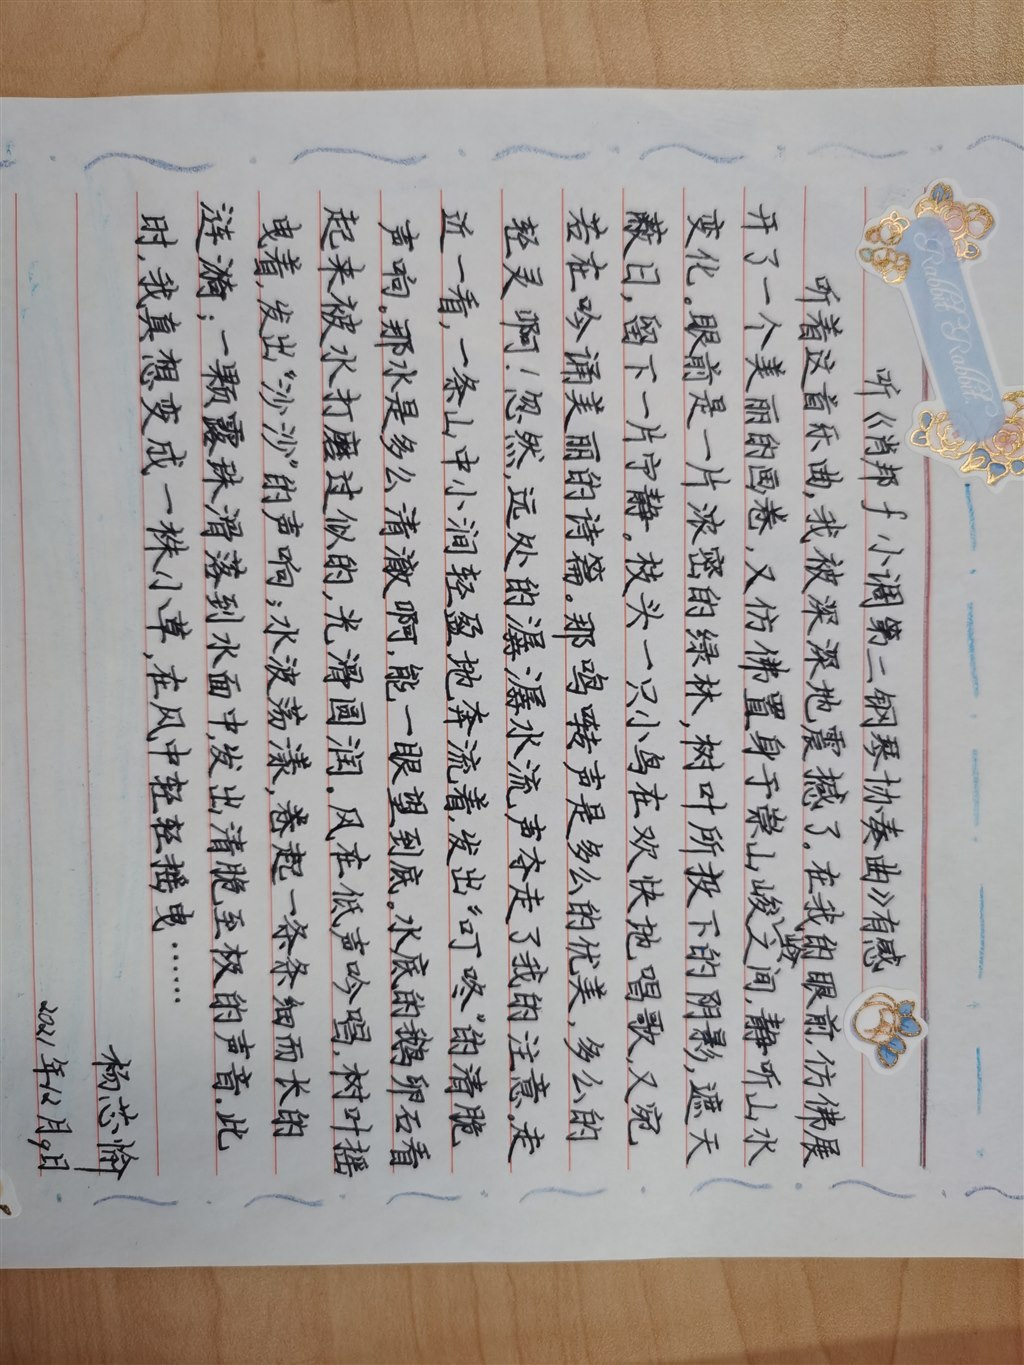 Rabbit Rabbit
听《肖邦f小调第二钢琴协奏曲》有感
听着这首乐曲，我被深深地震撼了。在我的眼前，仿佛展
开了一个美丽的画卷，又仿佛置身于崇山峻岭之间，静听山水
变化。眼前是一片浓密的绿林，树叶所投下的阴影，遮天
蔽日，留下一片宁静。枝头一只小鸟在欢快地唱歌，又宛
若在吟诵美丽的诗篇。那鸣啭声是多么的优美，多么的
轻灵啊！忽然，远处的潺潺水流声夺走了我的注意。走
近一看，一条山中小涧轻盈地奔流着，发出“叮咚”的清脆
声响。那水是多么清澈啊，能一眼望到底。水底的鹅卵石看
起来被水打磨过似的，光滑圆润。风在低声吟唱，树叶摇
曳着，发出“沙沙”的声响；水波荡漾，卷起一条条细而长的
涟漪；一颗露珠滑落到水面中，发出清脆至极的声音。此
时，我真想变成一株小草，在风中轻轻摇曳……
杨芯愉
2021年12月9日